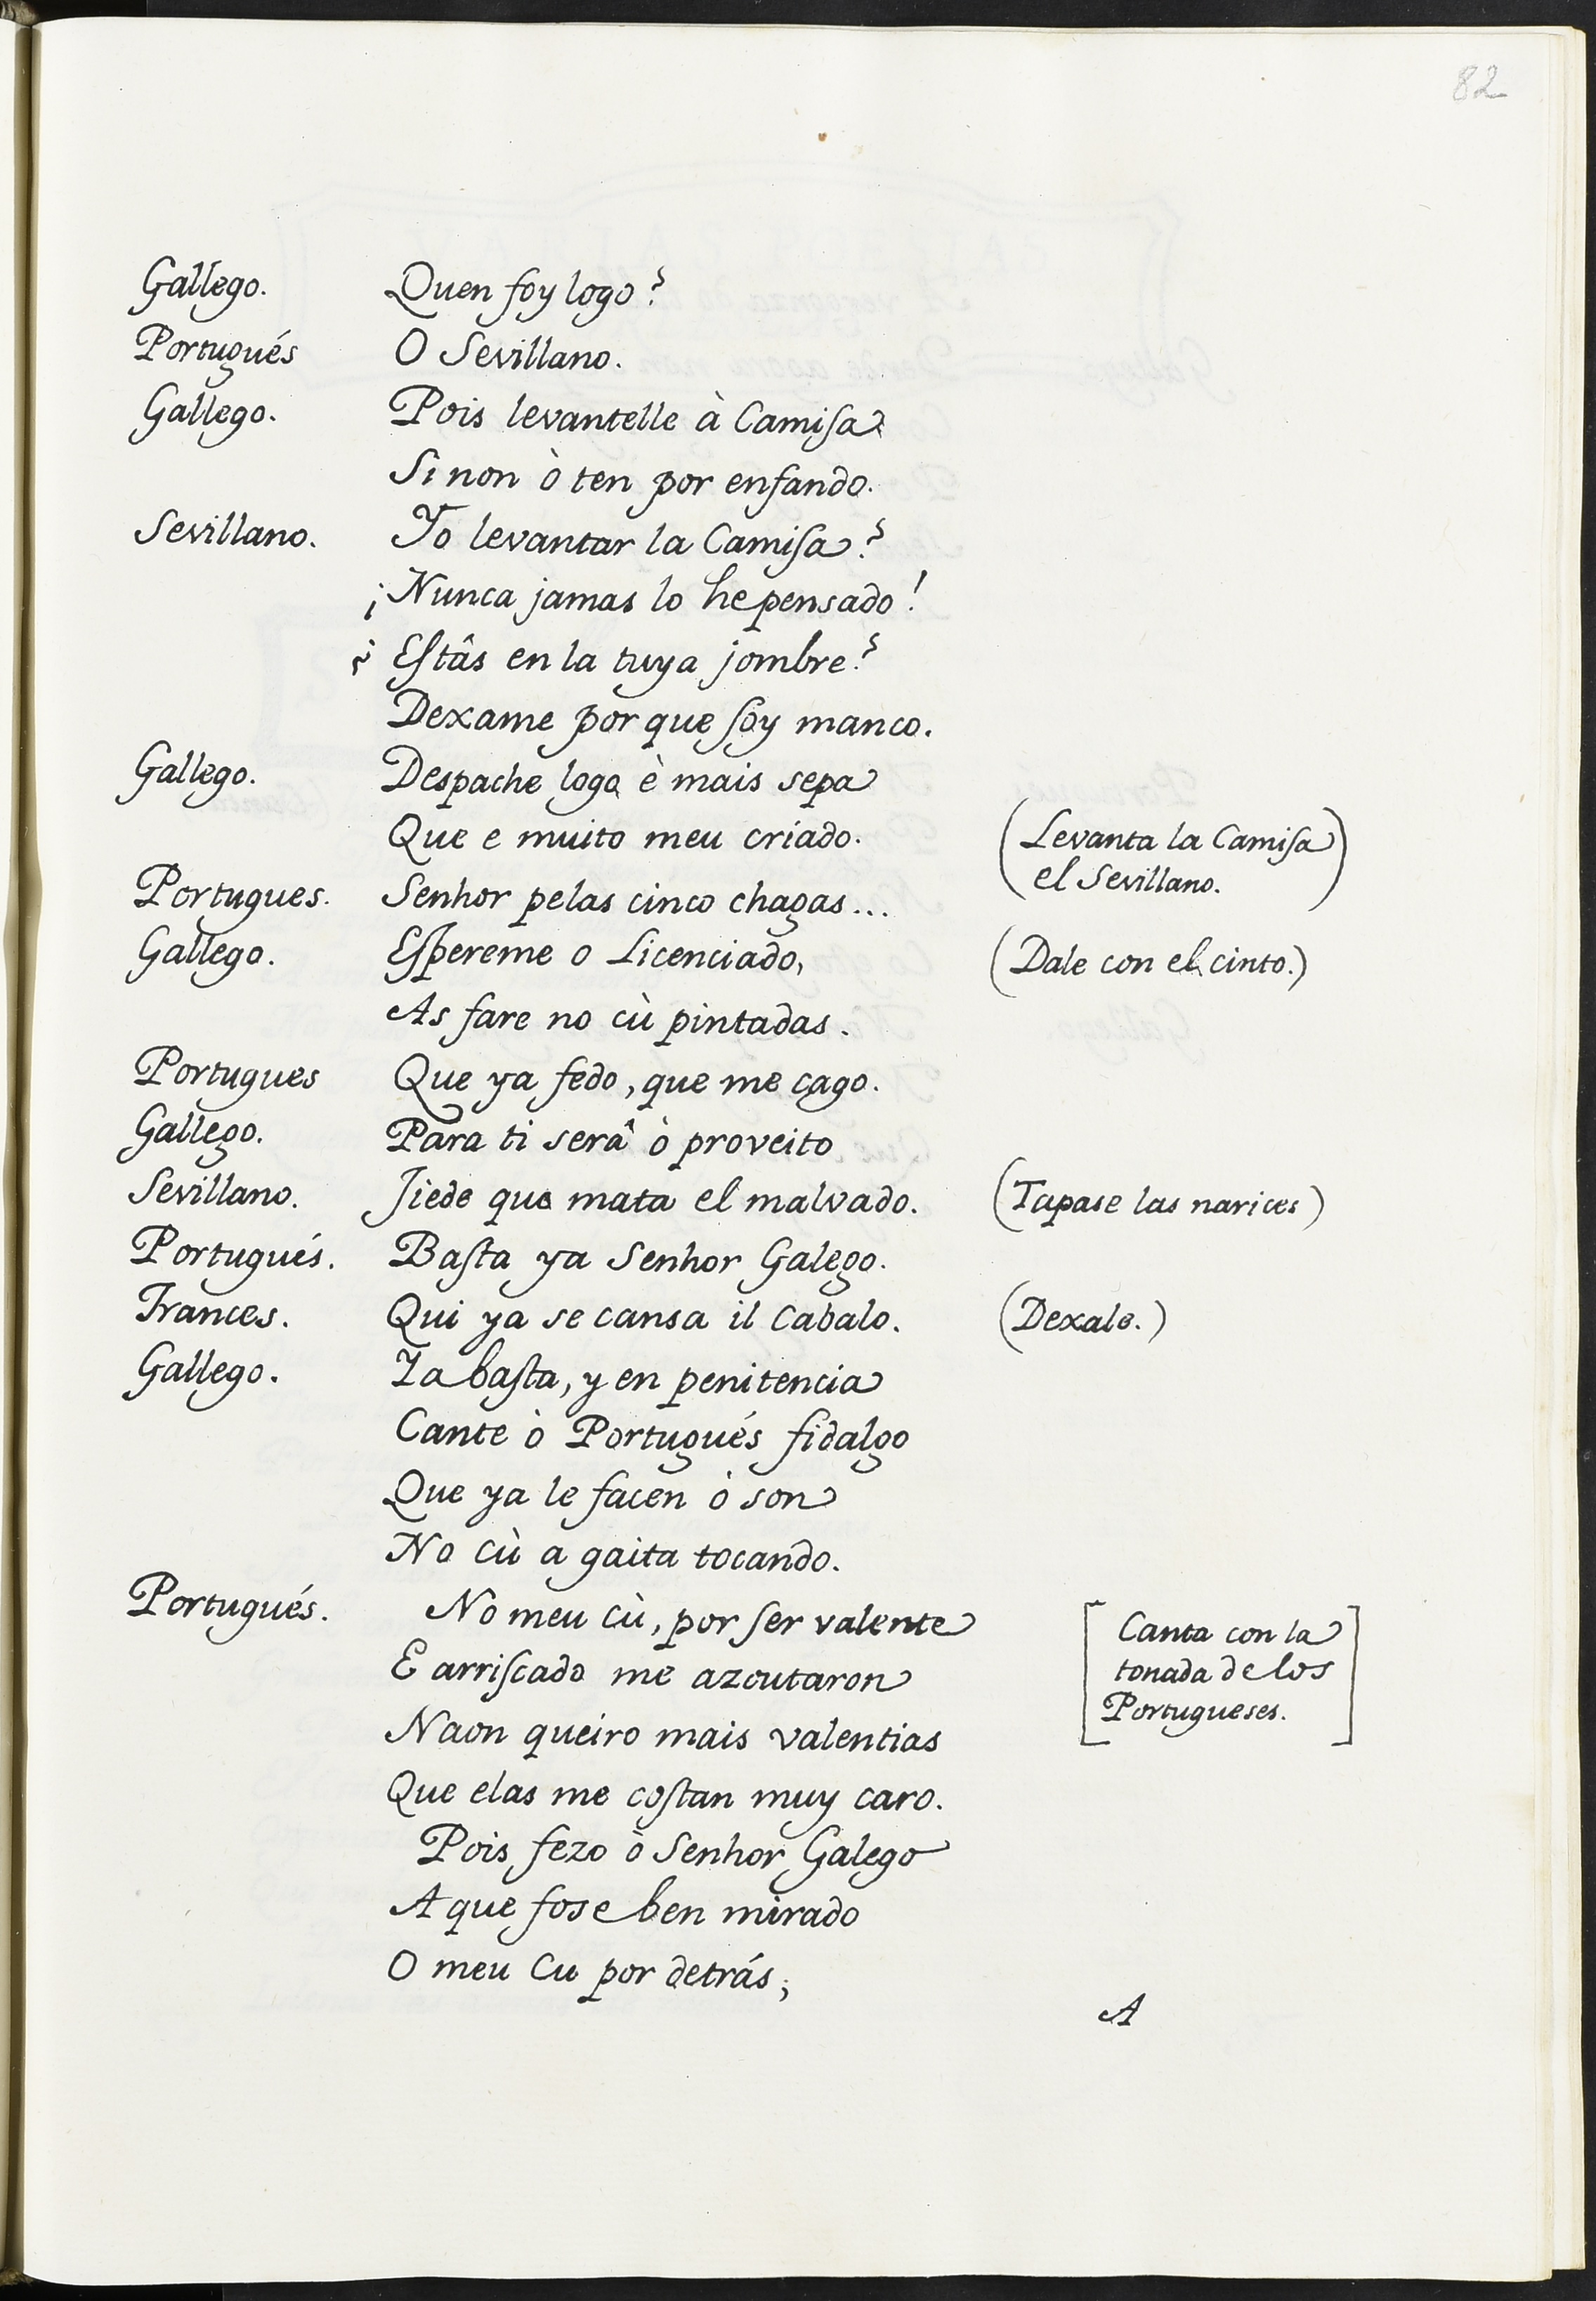 82
Gallego. Quen foy logo?
Portugués O Sevillano.
Gallego. Pois levantelle à Camiſa
Si non ò ten por enfando.
Sevillano. Yo levantar la Camiſa?
¡Nunca jamas lo he pensado!
¿Eſtâs en la tuya jombre?
Dexame por que ſoy manco.
Gallego. Despache logo è mais sepa
Que e muito meu criado. (Levanta la Camiſa
el Sevillano.)
Portugues. Senhor pelas cinco chagas...
Gallego. Eſpereme o Licenciado, (Dale con el cinto.)
As fare no cù pintadas.
Portugues Que ya fedo, que me cago.
Gallego. Para ti serâ ò proveito
Sevillano. Jiede que mata el malvado. (Tapase las narices)
Portugués. Baſta ya Senhor Galego.
Frances. Qui ya se cansa il Cabalo. (Dexale.)
Gallego. Ya baſta, y en penitencia
Cante ò Portugués fidalgo
Que ya le facen ò son
No cù a gaita tocando.
Portugués. No meu cù, por ſer valente [Canta con la
E arriſcado me azoutaron tonada de los
Naon queiro mais valentias Portugueses.]
Que elas me coſtan muy caro.
Pois fezo ò Senhor Galego
A que fose ben mirado
O meu Cu por detrás;
A